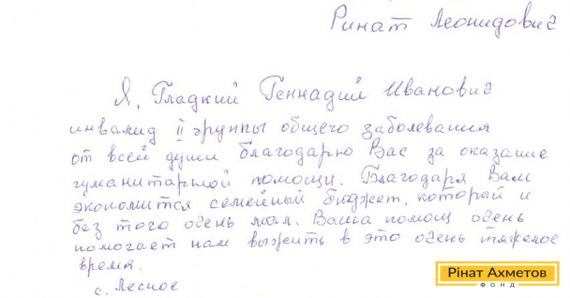 Ринат Леонидович
Я, Гладкий Геннадий Иванович
инвалид II группы общего заболевания
от всей души благодарю Вас за оказание
гуманитарной помощи. Благодаря Вам
экономится семейный бюджет, который и
без того очень мал. Ваша помощ очень
помогает нам выжить в это очень тяжелое
время.
с. Лесное
Рінат Ахметов
ФОНД